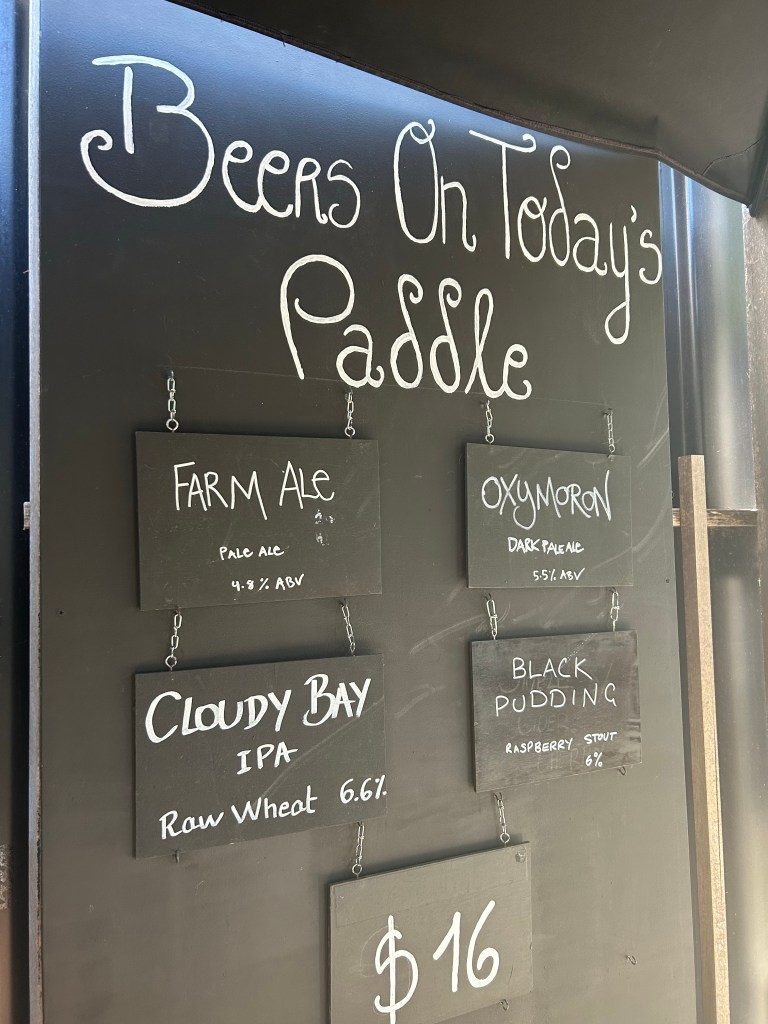 Beers On Today's
Paddle
FARM ALe
PALe ALe
4.8% ABV
OXYMORON
DARK PALE ALe
5.5% ABV
CLOUDY BAY
IPA
Raw Wheat 6.6%
BLACK
PUDDING
RASPBERRY STOUT
6%
$16